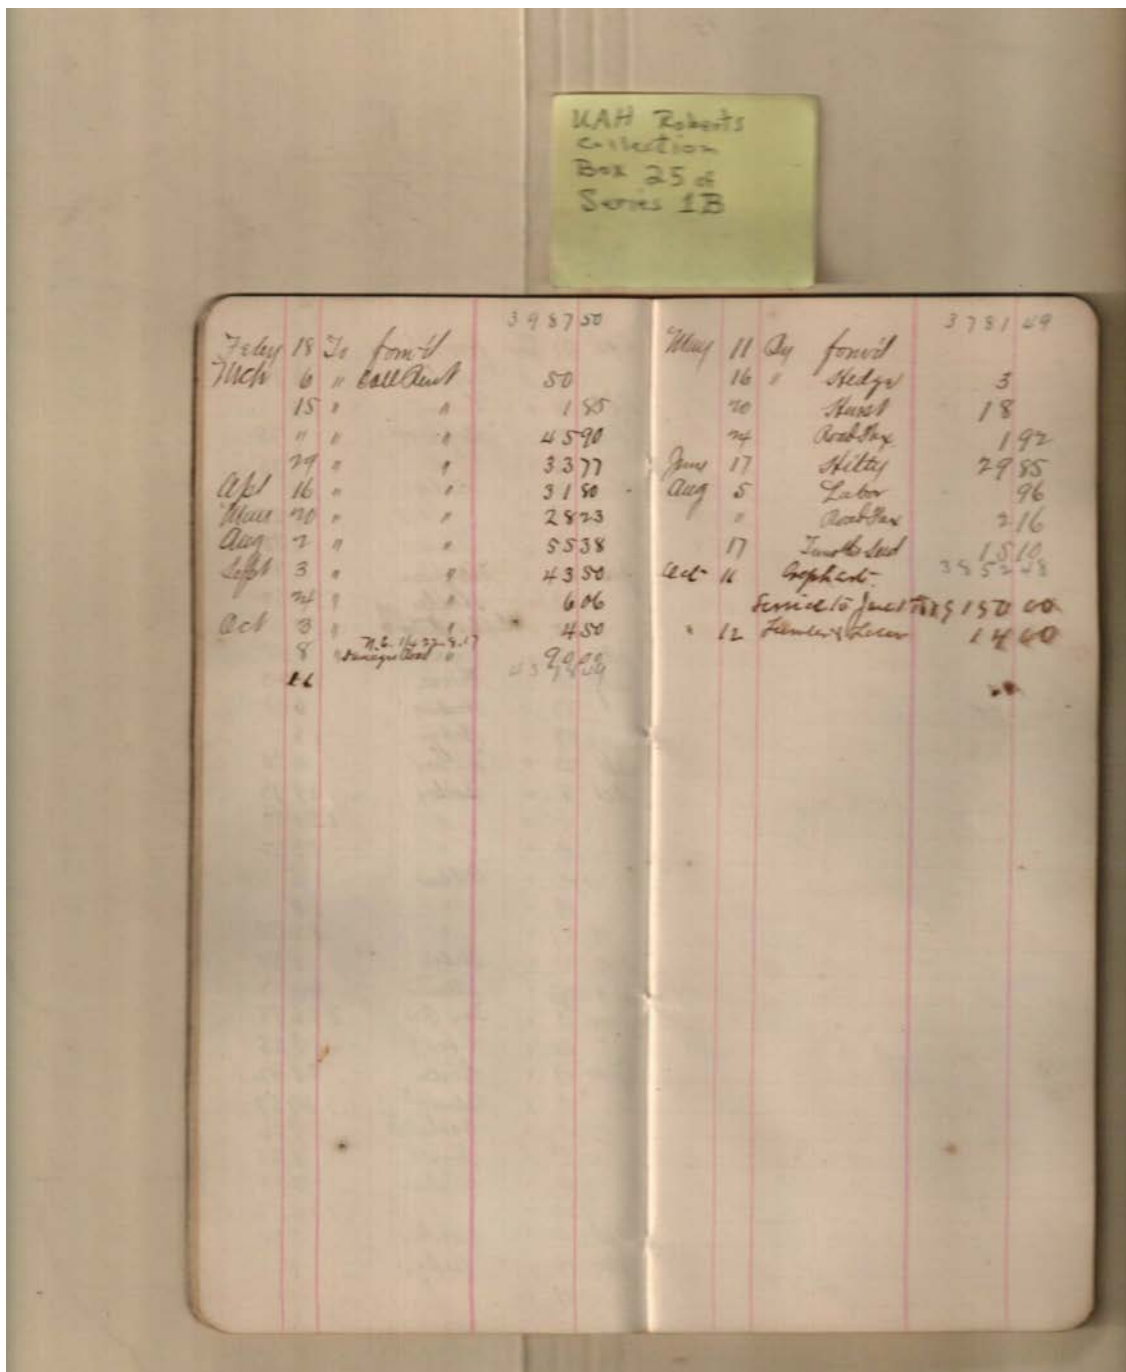 UAH Roberts
Collection
Box 25 of
Series 1B
3987 50
Feby 18 To forw'd
Mch 6 " Coll Rent 50
15 " " 1 85
" " " 45 90
29 " " 33 77
Apl 16 " " 31 80
May 20 " " 28 23
Aug 2 " " 55 38
Sept 3 " " 43 50
24 " " 6 06
Oct 3 " " 4 50
8 " Road "
16
3781 49
May 11 By forw'd
16 " Hedge 3
20 Hurst 18
24 Road Tax 1 92
June 17 Hilty 29 85
Aug 5 Labor 96
" Road Tax 2 16
17 Timothy Seed 15 10
Oct 11 3852 48
Service to 150 00
" 12 14 60